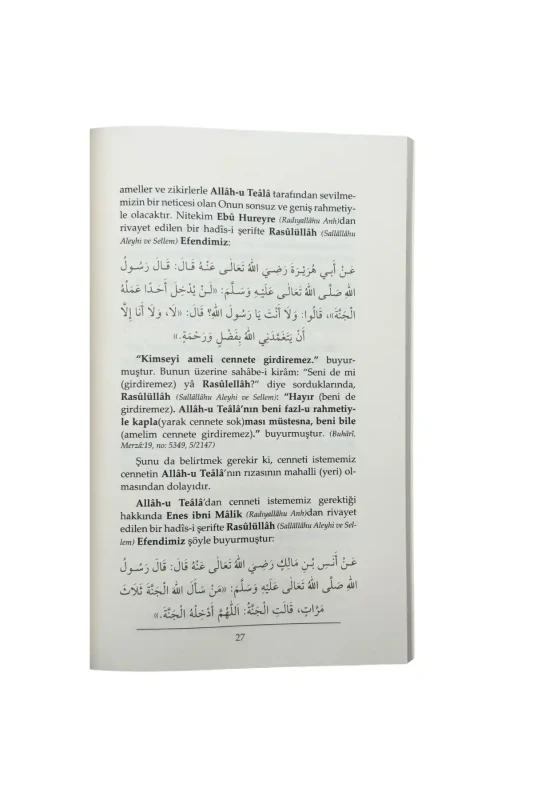 ameller ve zikirlerle Allâh-u Teâlâ tarafından sevilme-
mizin bir neticesi olan Onun sonsuz ve geniş rahmetiy-
le olacaktır. Nitekim Ebû Hureyre (Radıyallâhu Anh)dan
rivayet edilen bir hadîs-i şerifte Rasûlüllâh (Sallâllâhu
Aleyhi ve Sellem) Efendimiz:
عَنْ أَبِي هُرَيْرَةَ رَضِيَ اللهُ تَعَالَى عَنْهُ قَالَ: قَالَ رَسُولُ
اللهِ صَلَّى اللهُ تَعَالَى عَلَيْهِ وَسَلَّمَ: «لَنْ يُدْخِلَ أَحَدًا عَمَلُهُ
الْجَنَّةَ»، قَالُوا: وَلَا أَنْتَ يَا رَسُولَ اللهِ؟ قَالَ: «لَا، وَلَا أَنَا إِلَّا
أَنْ يَتَغَمَّدَنِي اللهُ بِفَضْلٍ وَرَحْمَةٍ.»
"Kimseyi ameli cennete girdiremez." buyur-
muştur. Bunun üzerine sahâbe-i kirâm: "Seni de mi
(girdiremez) yâ Rasûlellâh?" diye sorduklarında,
Rasûlüllâh (Sallâllâhu Aleyhi ve Sellem): "Hayır (beni de
girdiremez). Allâh-u Teâlâ'nın beni fazl-u rahmetiy-
le kapla(yarak cennete sok)ması müstesna, beni bile
(amelim cennete girdiremez)." buyurmuştur. (Buhârî,
Merzâ:19, no: 5349, 5/2147)
Şunu da belirtmek gerekir ki, cenneti istememiz
cennetin Allâh-u Teâlâ'nın rızasının mahalli (yeri) ol-
masından dolayıdır.
Allâh-u Teâlâ'dan cenneti istememiz gerektiği
hakkında Enes ibni Mâlik (Radıyallâhu Anh)dan rivayet
edilen bir hadîs-i şerifte Rasûlüllâh (Sallâllâhu Aleyhi ve Sel-
lem) Efendimiz şöyle buyurmuştur:
عَنْ أَنَسِ بْنِ مَالِكٍ رَضِيَ اللهُ تَعَالَى عَنْهُ قَالَ: قَالَ رَسُولُ
اللهِ صَلَّى اللهُ تَعَالَى عَلَيْهِ وَسَلَّمَ: «مَنْ سَأَلَ اللهَ الْجَنَّةَ ثَلَاثَ
مَرَّاتٍ، قَالَتِ الْجَنَّةُ: اَللّٰهُمَّ أَدْخِلْهُ الْجَنَّةَ.»
27